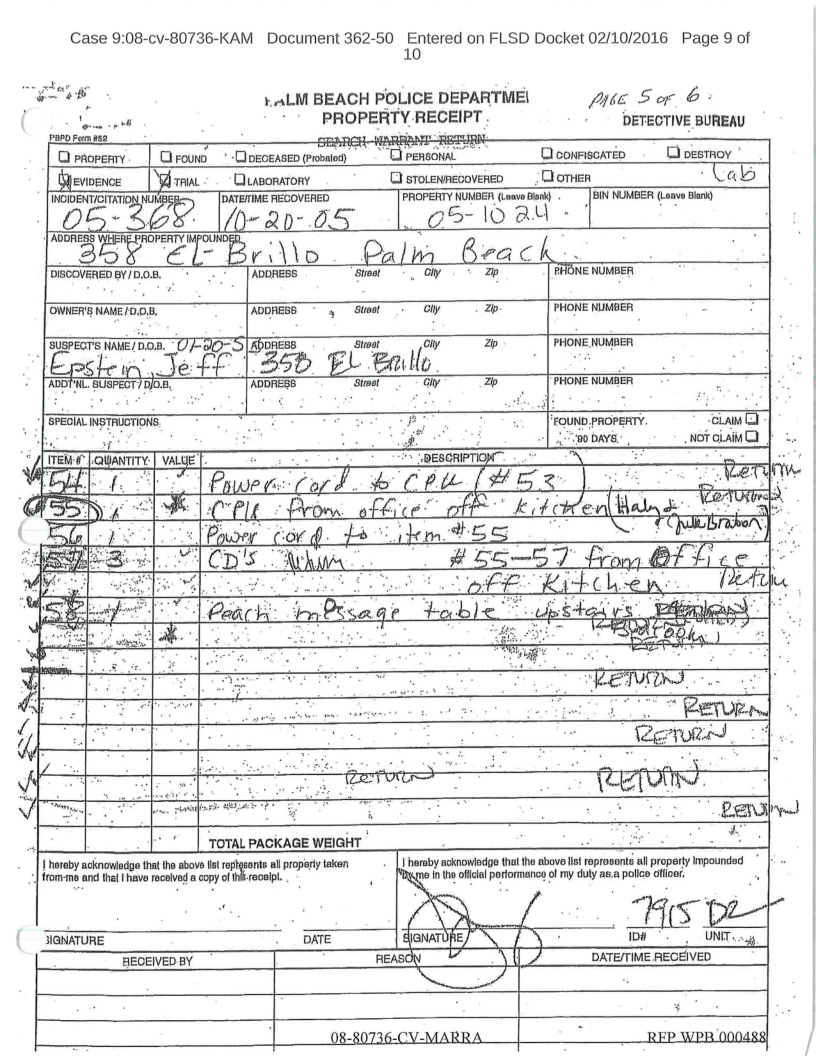 Case 9:08-cv-80736-KAM Document 362-50 Entered on FLSD Docket 02/10/2016 Page 9 of
10
PALM BEACH POLICE DEPARTMENT
PAGE 5 OF 6
PROPERTY RECEIPT
DETECTIVE BUREAU
PBPD Form #52
SEARCH WARRANT RETURN
PROPERTY FOUND DECEASED (Probated) PERSONAL CONFISCATED DESTROY
EVIDENCE TRIAL LABORATORY STOLEN/RECOVERED OTHER Lab
INCIDENT/CITATION NUMBER DATE/TIME RECOVERED PROPERTY NUMBER (Leave Blank) BIN NUMBER (Leave Blank)
05-368 10-20-05 05-1024
ADDRESS WHERE PROPERTY IMPOUNDED
358 El-Brillo Palm Beach
DISCOVERED BY / D.O.B. ADDRESS Street City Zip PHONE NUMBER
OWNER'S NAME / D.O.B. ADDRESS Street City Zip PHONE NUMBER
SUSPECT'S NAME / D.O.B. 01-20-5 ADDRESS Street City Zip PHONE NUMBER
Epstein, Jeff 358 El Brillo
ADDT'NL. SUSPECT / D.O.B. ADDRESS Street City Zip PHONE NUMBER
SPECIAL INSTRUCTIONS FOUND PROPERTY CLAIM
90 DAYS NOT CLAIM
ITEM # QUANTITY VALUE DESCRIPTION
54 1 Power cord to CPU #53 Return
55 1 CPU from office off kitchen Returned
56 1 Power cord to item #55
57 3 CD's #55-57 from office
off kitchen Return
58 1 Peach message table upstairs
RETURN
RETURN
RETURN
RETURN
RETURN RETURN
RETURN
TOTAL PACKAGE WEIGHT
I hereby acknowledge that the above list represents all property taken
from me and that I have received a copy of this receipt.
I hereby acknowledge that the above list represents all property impounded
by me in the official performance of my duty as a police officer.
7915 DR
SIGNATURE DATE SIGNATURE ID# UNIT
RECEIVED BY REASON DATE/TIME RECEIVED
08-80736-CV-MARRA RFP WPB 000488